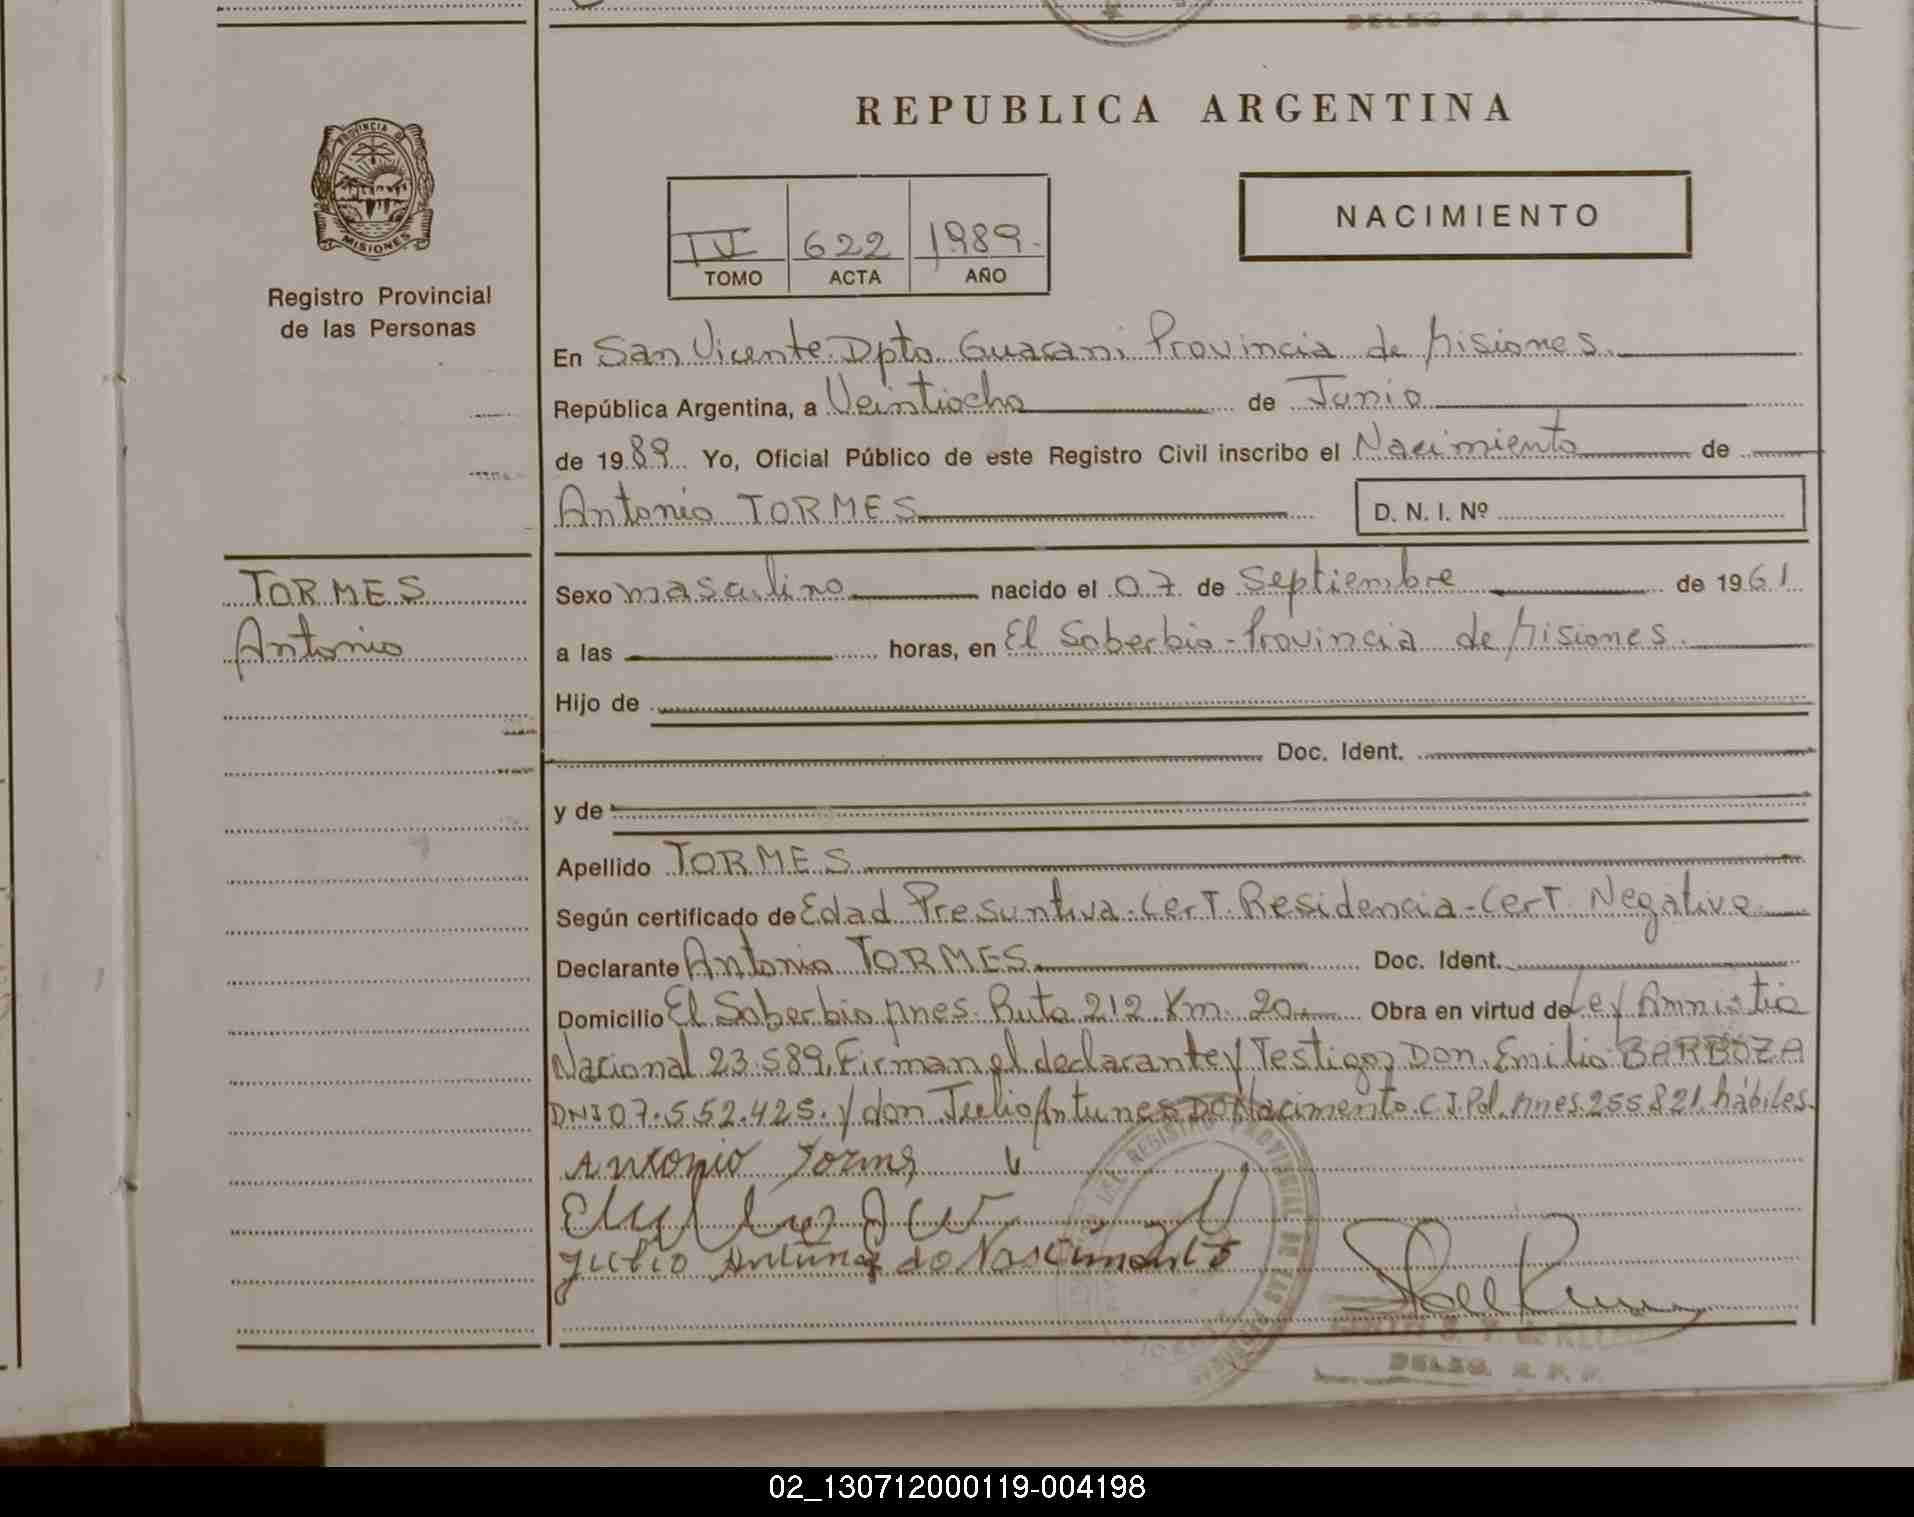 REPUBLICA ARGENTINA
PROVINCIA D
MISIONES
Registro Provincial
de las Personas
NACIMIENTO
IV 622 1989.
TOMO ACTA AÑO
En San Vicente Dpto Guarani Provincia de Misiones.
República Argentina, a Veintiocho de Junio
de 1989 Yo, Oficial Público de este Registro Civil inscribo el Nacimiento de
Antonio TORMES D. N. I. Nº
TORMES
Antonio
Sexo masculino nacido el 07 de Septiembre de 1961
a las horas, en El Soberbio - Provincia de Misiones.
Hijo de
Doc. Ident.
y de
Apellido TORMES
Según certificado de Edad Presuntiva. Cert. Residencia - Cert. Negativo
Declarante Antonio TORMES Doc. Ident.
Domicilio El Soberbio Mnes. Ruta 212 Km. 20 Obra en virtud de Ley Amnistia
Nacional 23.589. Firman el declarante y Testigos Don. Emilio BARBOZA
DNI 07.552.425. y don Julio Antunes DO Nacimento C.I. Pol. Mnes. 255821. hábiles.
Antonio Torms
Julio Antunes do Nascimento
DELEG. R. P. P.
02_130712000119-004198